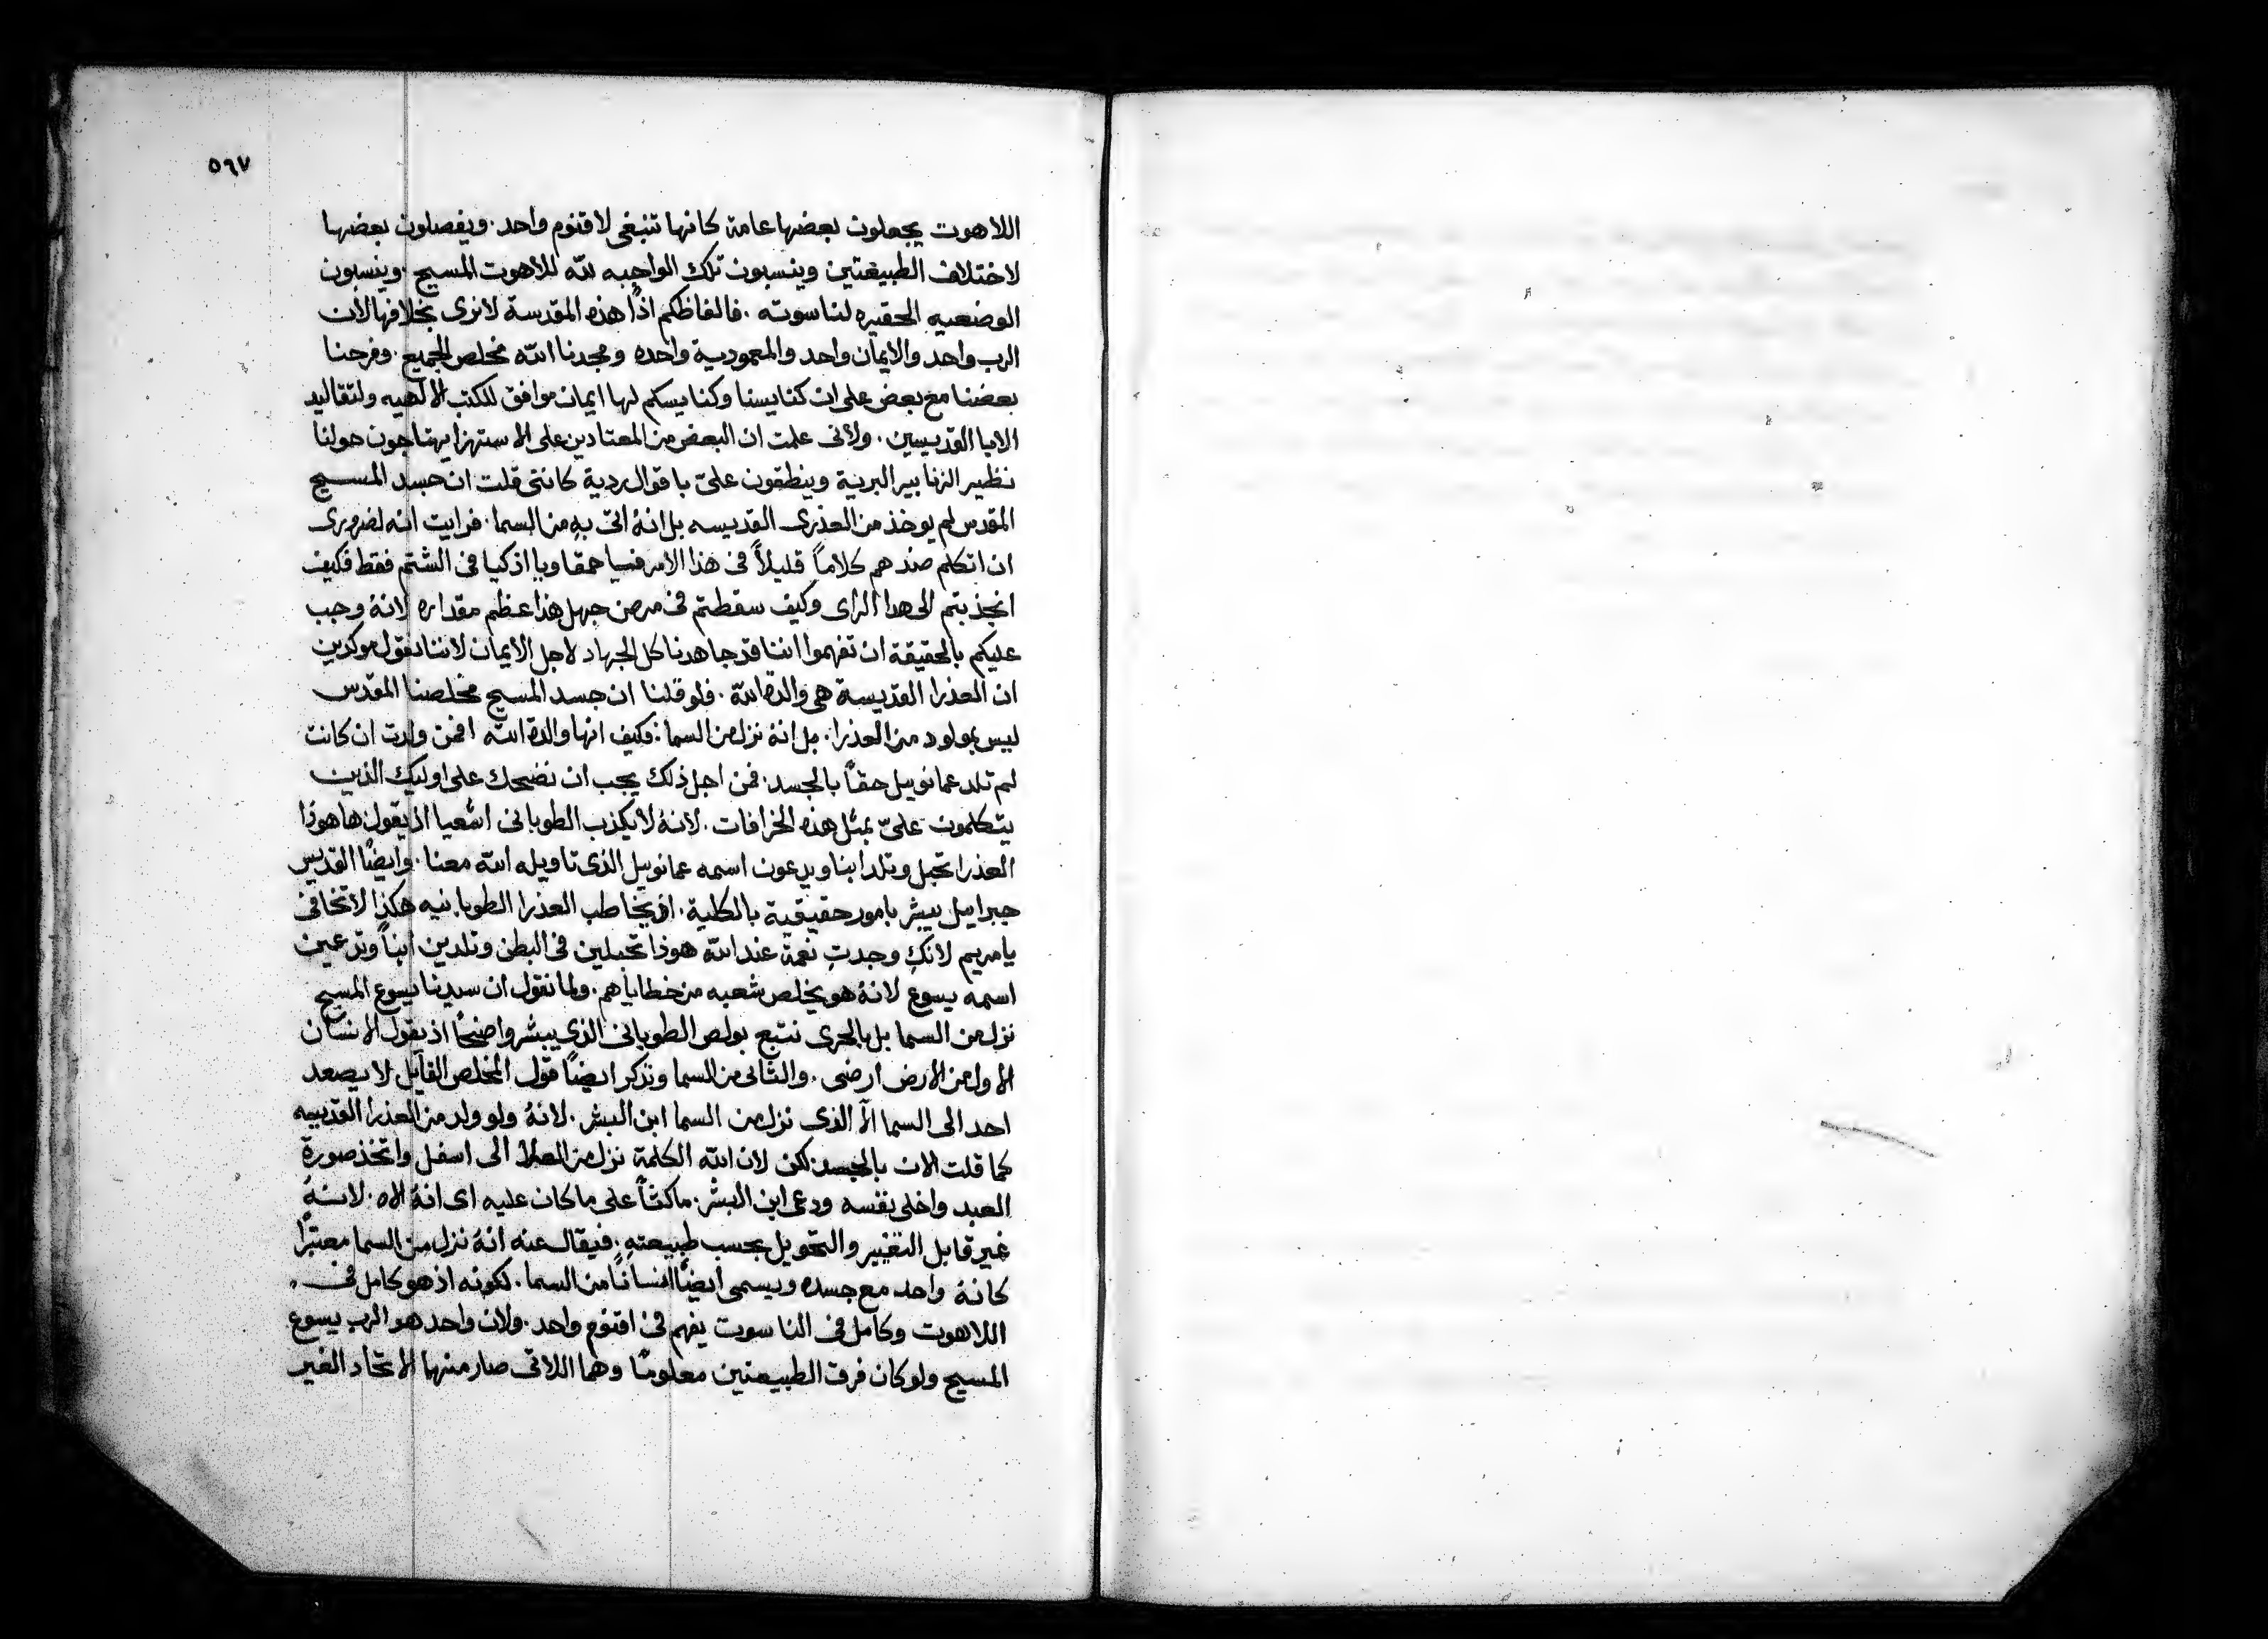 ٥٦٧
اللاهوت يجعلون بعضها عامة كانها تنبغي لاقنوم واحد. ويفصلون بعضها
لاختلاف الطبيعتين وينسبون تلك الواجبه لله للاهوت المسيح. وينسبون
الوضعيه الحقيره لناسوته. فالفاظكم اذًا هذه المقدسة لانرى بخلافها لان
الرب واحد والايمان واحد والمعمودية واحده ومجدنا الله مخلص الجميع. وفرحنا
بعضنا مع بعض على ان كنايسنا وكنايسكم لها ايمان موافق للكتب الالهيه ولتقاليد
الابا القديسين. ولاني علمت ان البعض من المعتادين على الاستهزا يهتاجون حولنا
نظير الزنابير البرية وينطقون عليّ باقوال ردية كانني قلت ان جسد المسيح
المقدس لم يوخذ من العذرى القديسه بل انهُ اتى بهِ من السما. فرايت انه لضرورى
ان اتكلم ضدهم كلاماً قليلاً في هذا الامر فيا حمقا ويا اذكيا في الشتم فقط فكيف
انجذبتم الى هدا الراى وكيف سقطتم في مرض جهل هذا عظم مقداره لانهُ وجب
عليكم بالحقيقة ان تفهموا اننا قد جاهدنا كل الجهاد لاجل الايمان لاننا نقول موكدين
ان العذرا القديسة هي والدة الله. فلو قلنا ان جسد المسيح مخلصنا المقدس
ليس بمولود من العذرا. بل انهُ نزل من السما: فكيف انها والدة الله افمن ولدت ان كانت
لم تلد عمانوييل حقاً بالجسد. فمن اجل ذلك يجب ان نضحك على اوليك الذين
يتكلمون عليّ بمثل هذه الخرافات. لانهُ لا يكذب الطوباني اشعيا اذ يقول هاهوذا
العذرا تحبل وتلد ابنا ويدعون اسمه عمانوييل الذى تاويله الله معنا. وايضًا القديس
جبراييل يبشر بامور حقيقية بالكلية. اذ يخاطب العذرا الطوبانيه هكذا لا تخافي
يا مريم لانكِ وجدتِ نعمة عند الله هوذا تحبلين في البطن وتلدين ابناً وتدعين
اسمه يسوع لانهُ هو يخلص شعبه من خطاياهم. ولما نقول ان سيدنا يسوع المسيح
نزل من السما بل بالحرى نتبع بولص الطوباني الذي يبشر واضحًا اذ يقول الانسان
الاول من الارض ارضى. والثاني من السما ونذكر ايضًا قول المخلص القايل لا يصعد
احد الى السما الّا الذى نزل من السما ابن البشر. لانهُ ولو ولد من العذرا القديسه
كما قلت الان بالجسد لكن لان الله الكلمة نزل من العلا الى اسفل واتخذ صورة
العبد واخلى نفسه ودعى ابن البشر. ماكثاً على ما كان عليه اى انهُ اله. لانهُ
غير قابل التغيير والتحويل بحسب طبيعتهِ. فيقال عنه انهُ نزل من السما معتبرًا
كانهُ واحد مع جسده ويسمى ايضًا انسانًا من السما. لكونه اذ هو كامل في
اللاهوت وكامل في الناسوت يفهم في اقنوم واحد. ولان واحد هو الرب يسوع
المسيح ولو كان فرق الطبيعتين معلومًا وهما اللاتى صار منها الاتحاد الغير